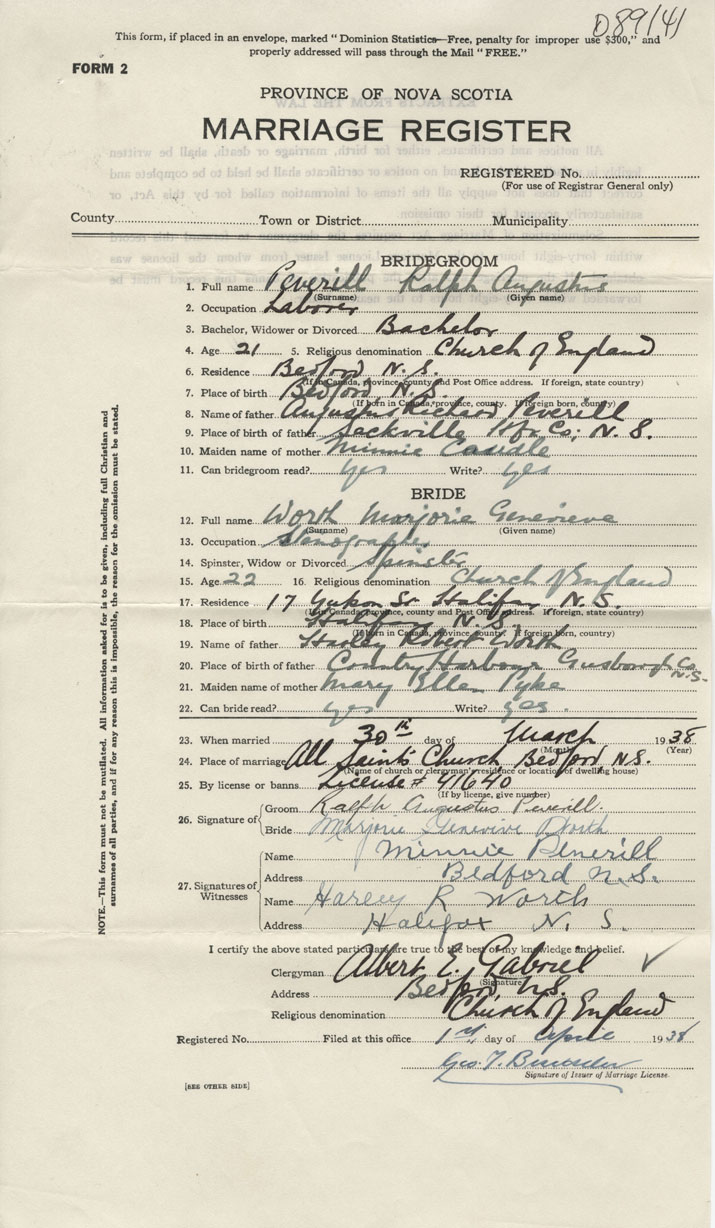 D89/41
This form, if placed in an envelope, marked "Dominion Statistics—Free, penalty for improper use $300," and
properly addressed will pass through the Mail "FREE."
FORM 2
PROVINCE OF NOVA SCOTIA
MARRIAGE REGISTER
REGISTERED No.
(For use of Registrar General only)
County Town or District Municipality
BRIDEGROOM
1. Full name Peverill Ralph Augustus
(Surname) (Given name)
2. Occupation Laborer
3. Bachelor, Widower or Divorced Bachelor
4. Age 21 5. Religious denomination Church of England
6. Residence Bedford N.S.
(If in Canada, province, county and Post Office address. If foreign, state country)
7. Place of birth Bedford, N.S.
(If born in Canada, province, county. If foreign born, country)
8. Name of father Augustus Richard Peverill
9. Place of birth of father Sackville Hfx Co; N.S.
10. Maiden name of mother Minnie
11. Can bridegroom read? yes Write? yes
BRIDE
12. Full name Worth Marjorie Genevieve
(Surname) (Given name)
13. Occupation Stenographer
14. Spinster, Widow or Divorced Spinster
15. Age 22 16. Religious denomination Church of England
17. Residence 17 Yukon St Halifax N.S.
(If in Canada, province, county and Post Office address. If foreign, state country)
18. Place of birth Halifax N.S.
(If born in Canada, province, county. If foreign born, country)
19. Name of father Robert Worth
20. Place of birth of father Country Harbour Co
N.S.
21. Maiden name of mother Mary Ellen Pyke
22. Can bride read? yes Write? yes.
23. When married 30th day of March 1938
(Month) (Year)
24. Place of marriage All Saints Church Bedford N.S.
(Name of church or clergyman's residence or location of dwelling house)
25. By license or banns License # 41640
(If by license, give number)
26. Signature of
Groom Ralph Augustus Peverill.
Bride Marjorie Genevive Worth
27. Signatures of Witnesses
Name Minnie Peverill
Address Bedford N.S.
Name R Worth
Address Halifax N.S.
I certify the above stated particulars are true to the best of my knowledge and belief.
Clergyman Albert E. Gabriel
(Signature)
Address Bedford, N.S.
Religious denomination Church of England
Registered No. Filed at this office 1st day of April 1938
Geo. T.
Signature of Issuer of Marriage License.
[SEE OTHER SIDE]
NOTE.—This form must not be mutilated. All information asked for is to be given, including full Christian and
surnames of all parties, and if for any reason this is impossible, the reason for the omission must be stated.